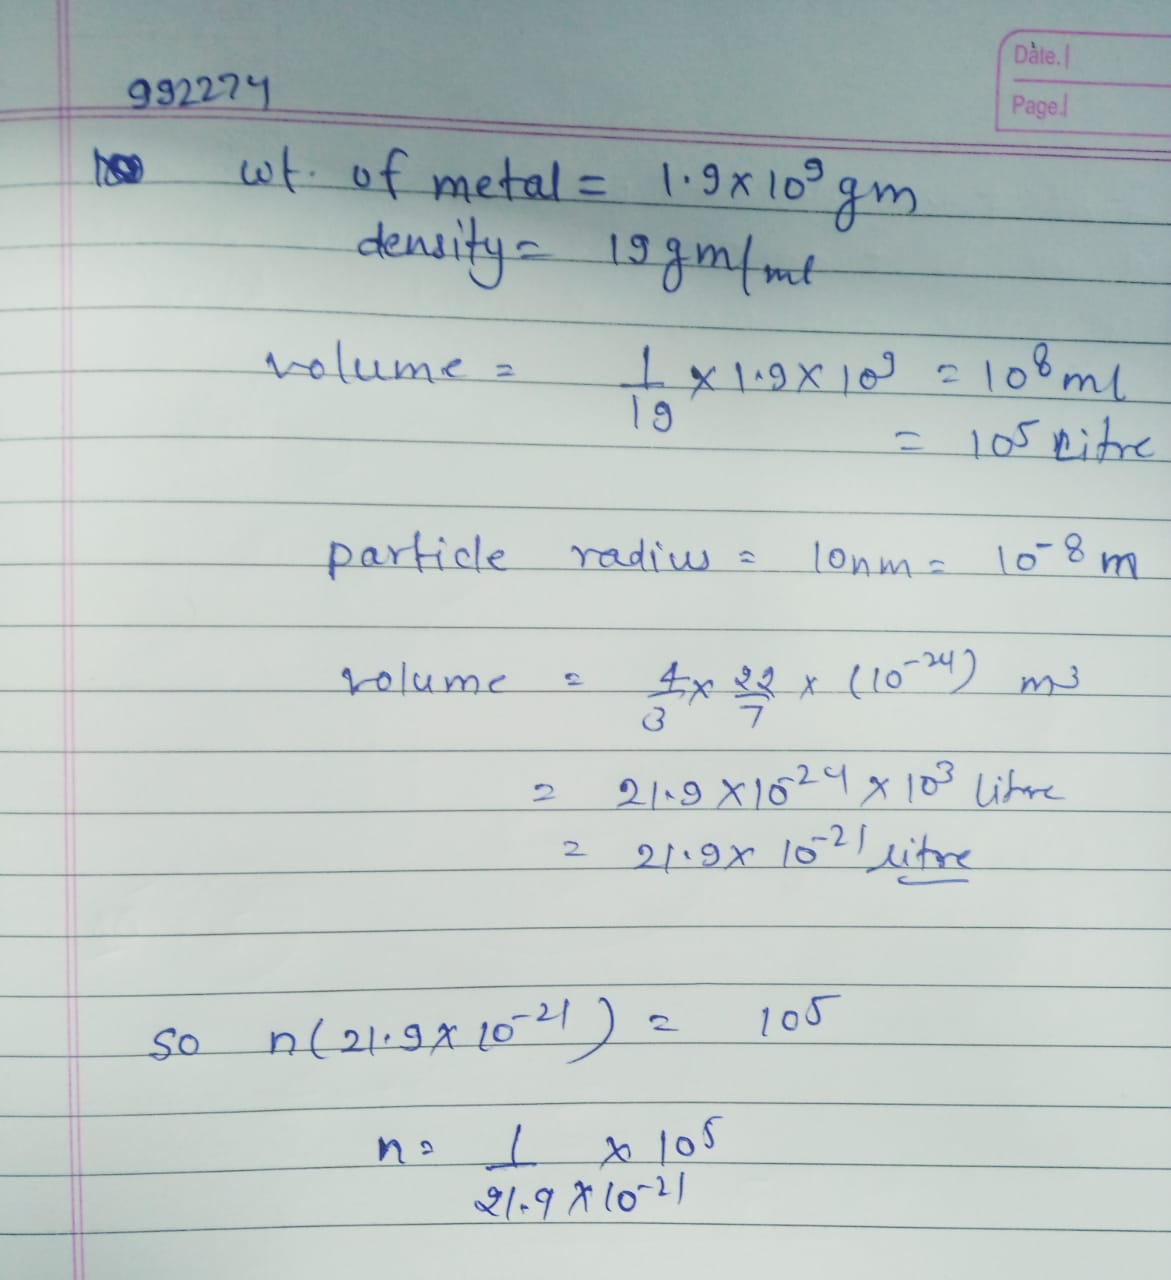 Date.
Page.
992274
wt. of metal = 1.9 x 10⁹ gm
density = 19 gm/ml
volume = 1/19 x 1.9 x 10⁹ = 10⁸ ml
= 10⁵ Litre
particle radius = 10nm = 10⁻⁸ m
volume = 4/3 x 22/7 x (10⁻²⁴) m³
= 21.9 x 10⁻²⁴ x 10³ litre
= 21.9 x 10⁻²¹ litre
so n(21.9 x 10⁻²¹) = 10⁵
n = 1/21.9 x 10⁻²¹ x 10⁵